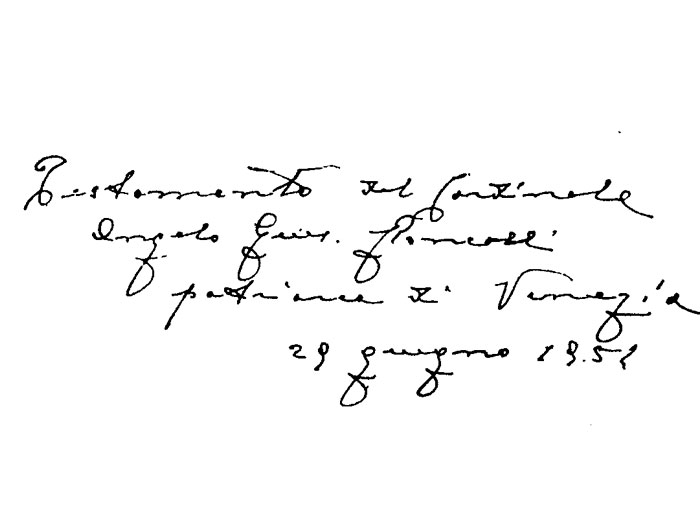 Testamento del Cardinale
Angelo Gius. Roncalli
patriarca di Venezia
29 giugno 195